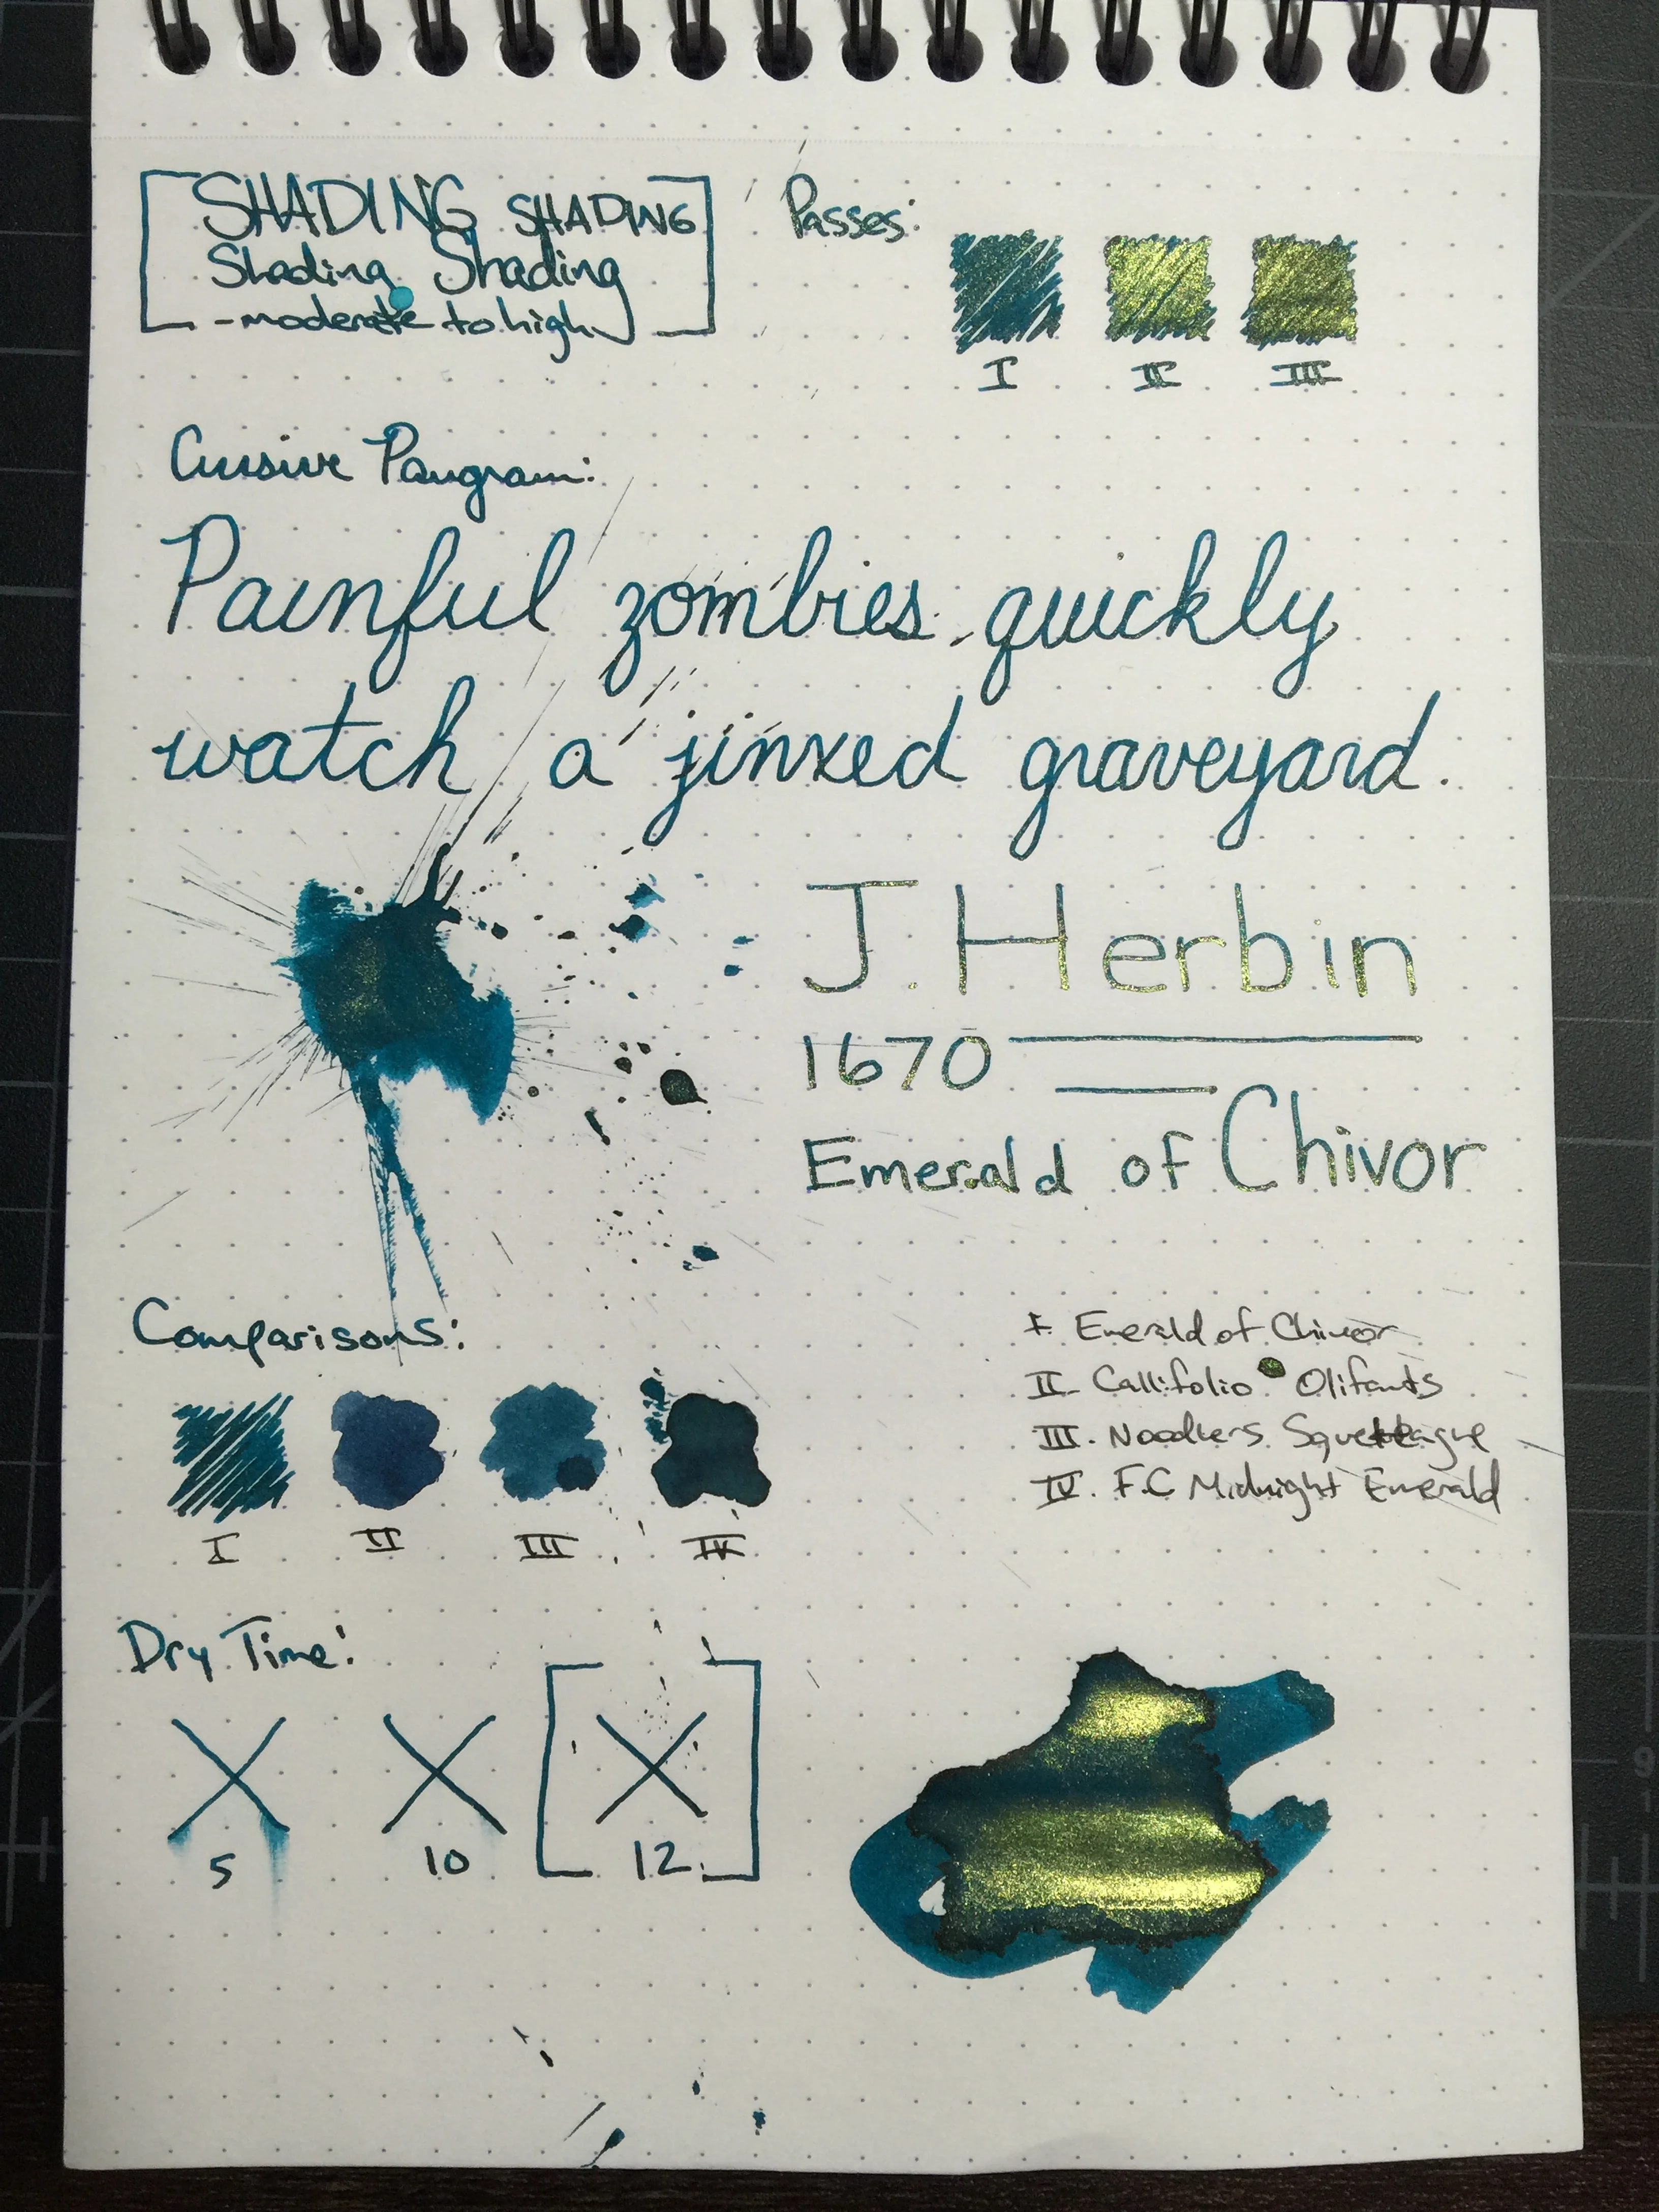 SHADING SHADING
Shading Shading
-moderate to high
Passes:
I II III
Cursive Pangram:
Painful zombies quickly
watch a jinxed graveyard.
J. Herbin
1670
Emerald of Chivor
Comparisons:
I II III IV
I. Emerald of Chivor
II. Callifolio Olifants
III. Noodlers Squeteague
IV. F.C Midnight Emerald
Dry Time:
5 10 12
9